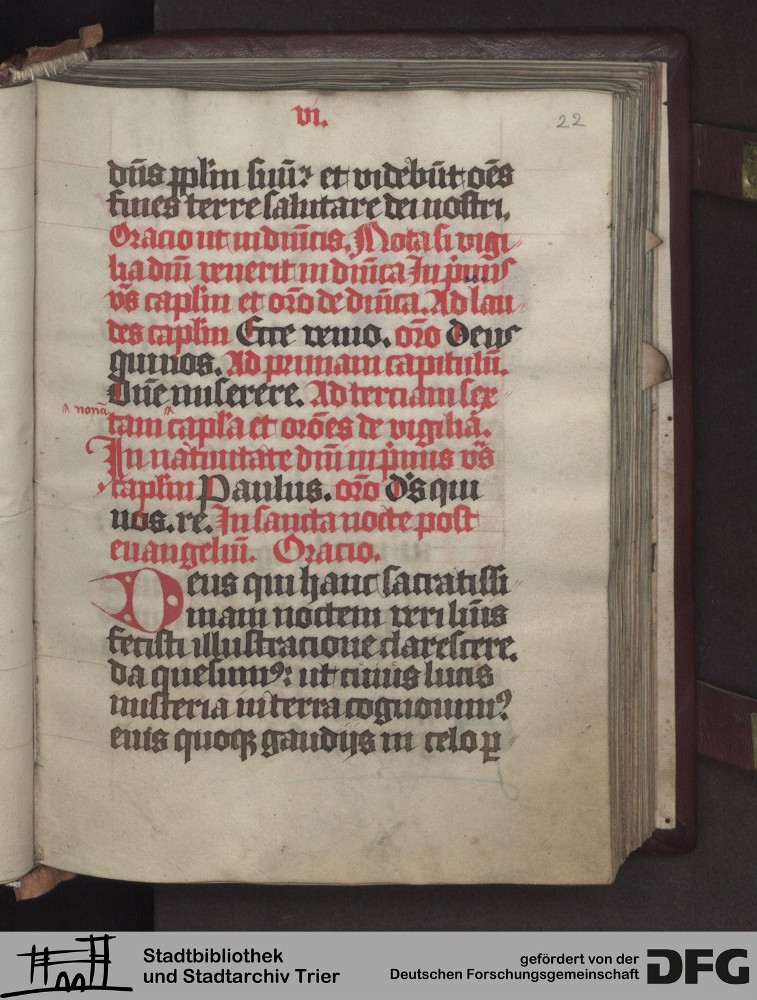 vi.
22
dn̄s ppl̄m suū⁊ et videbūt oēs
fines terre salutare dei nostri.
Oracio ut in dn̄icis. Nota si vigi
lia dn̄i venerit in dn̄ica In p̄mis
vs̄ capl̄m et orō de dn̄ica. Ad lau
des capl̄m Ecce venio. orō Deus
qui nos. Ad primam capitulū.
Dn̄e miserere. Ad terciam sex
nonā
tam capl̄a et orōes de vigilia.
In natiuitate dn̄i in p̄mis vs̄
capl̄m Paulus. orō ds̄ qui
nos. re. In sancta nocte post
euangeliū. Oracio.
Deus qui hanc sacratissi
mam noctem veri lūis
fecisti illustracione clarescere.
da quesumꝰ: ut cuius lucis
misteria in terra cognouimꝰ
eius quoqꝫ gaudijs in celo ꝑ
Stadtbibliothek
und Stadtarchiv Trier
gefördert von der
Deutschen Forschungsgemeinschaft
DFG